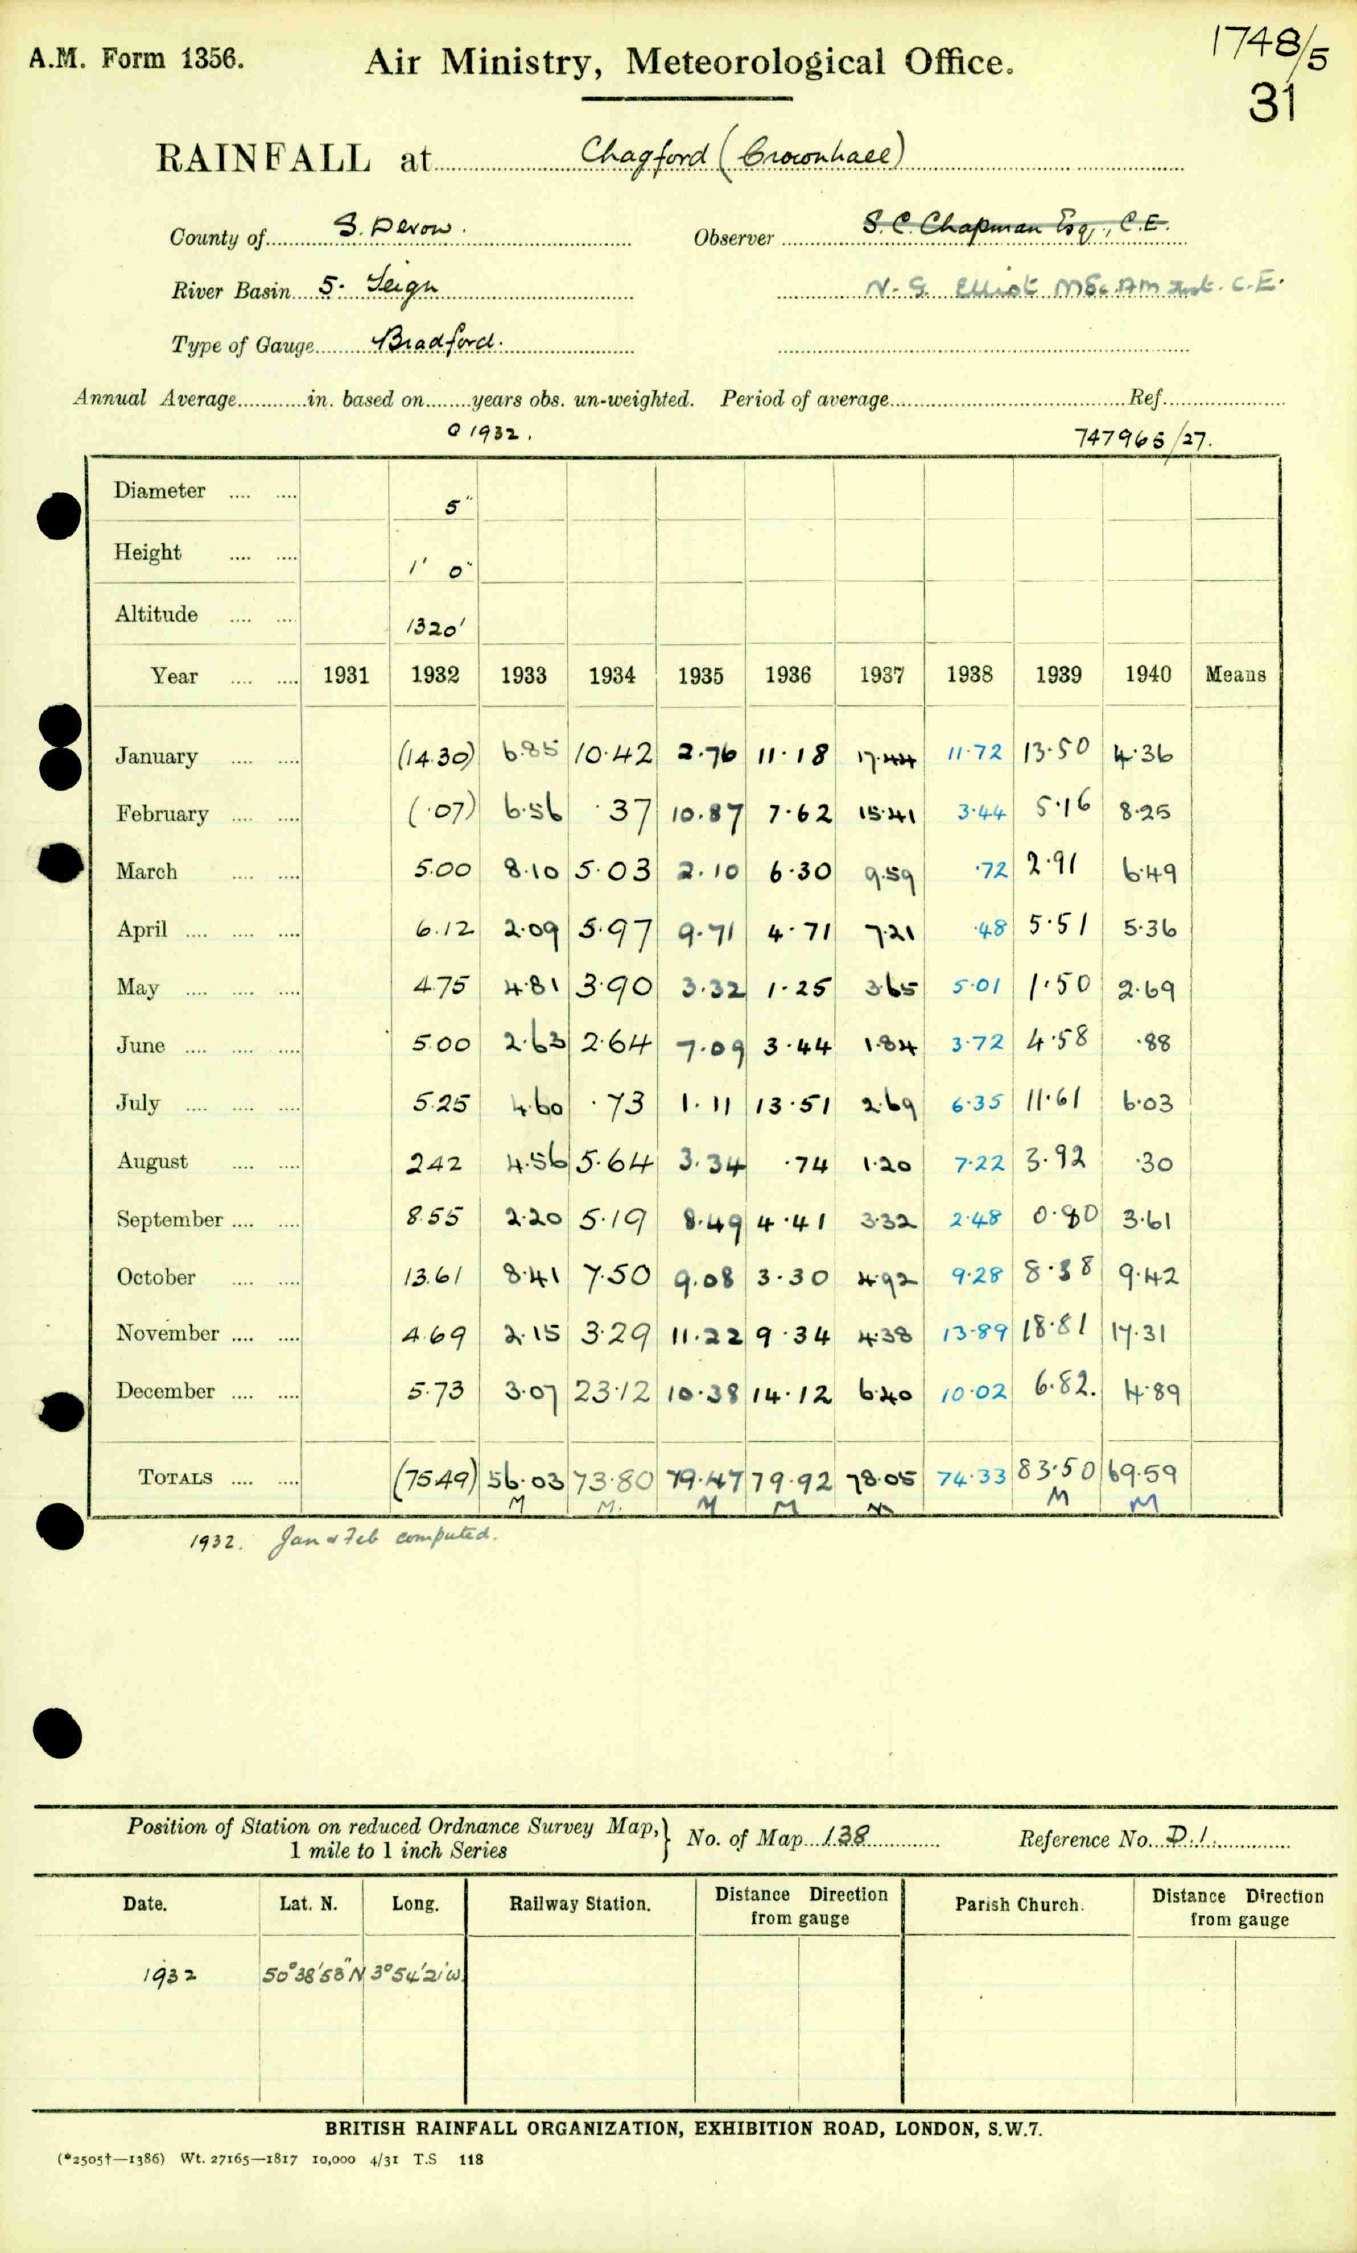 A.M. Form 1356.
Air Ministry, Meteorological Office.
1748/5
31
RAINFALL at Chagford (Crownhall)
County of S. Devon.
Observer S. C. Chapman Esq., C.E.
River Basin 5. Teign
N. S. Elliot MSc AM Inst. C.E.
Type of Gauge Bradford.
Annual Average............in. based on........years obs. un-weighted. Period of average............Ref............
0 1932.
747965/27.
Diameter .... .... 5"
Height .... .... 1' 0"
Altitude .... .... 1320'
Year .... .... 1931 1932 1933 1934 1935 1936 1937 1938 1939 1940 Means
January .... .... (14.30) 6.85 10.42 2.76 11.18 17.44 11.72 13.50 4.36
February .... .... (.07) 6.56 .37 10.87 7.62 15.41 3.44 5.16 8.25
March .... .... 5.00 8.10 5.03 2.10 6.30 9.59 .72 2.91 6.49
April .... .... .... 6.12 2.09 5.97 9.71 4.71 7.21 .48 5.51 5.36
May .... .... .... 4.75 4.81 3.90 3.32 1.25 3.65 5.01 1.50 2.69
June .... .... .... 5.00 2.63 2.64 7.09 3.44 1.84 3.72 4.58 .88
July .... .... .... 5.25 4.60 .73 1.11 13.51 2.69 6.35 11.61 6.03
August .... .... 2.42 4.56 5.64 3.34 .74 1.20 7.22 3.92 .30
September .... .... 8.55 2.20 5.19 8.49 4.41 3.32 2.48 0.80 3.61
October .... .... 13.61 8.41 7.50 9.08 3.30 4.92 9.28 8.38 9.42
November .... .... 4.69 2.15 3.29 11.22 9.34 4.38 13.89 18.81 17.31
December .... .... 5.73 3.07 23.12 10.38 14.12 6.40 10.02 6.82. 4.89
TOTALS .... .... (75.49) 56.03 73.80 79.47 79.92 78.05 74.33 83.50 69.59
M M. M M M M M
1932. Jan & Feb computed.
Position of Station on reduced Ordnance Survey Map,} No. of Map 138 Reference No. D.1.
1 mile to 1 inch Series
Date. Lat. N. Long. Railway Station. Distance Direction from gauge Parish Church. Distance Direction from gauge
1932 50°38'58"N 3°54'2"W.
BRITISH RAINFALL ORGANIZATION, EXHIBITION ROAD, LONDON, S.W.7.
(*2505†—1386) Wt. 27165—1817 10,000 4/31 T.S 118